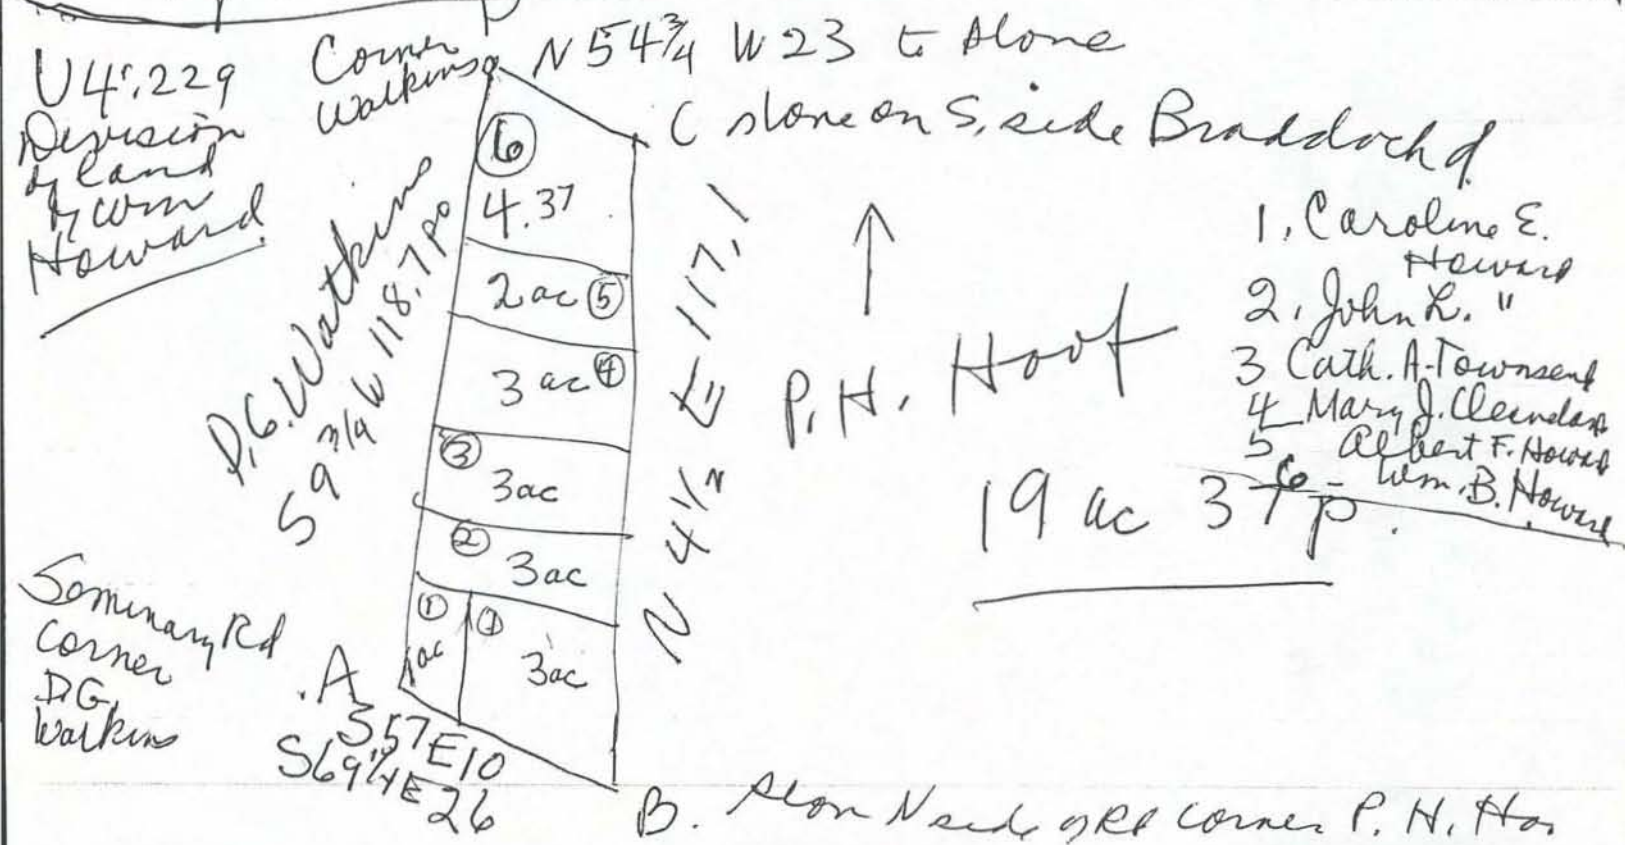 U4:229
Division
of land
of Wm
Howard
Corner
Watkins
N 54 3/4 W 23 to stone
C stone on S. side Braddock Rd.
D.G. Watkins
S 9 3/4 W 118.7 po
⑥
4.37
2 ac ⑤
3 ac ④
③
3 ac
②
3 ac
①
1 ac
①
3 ac
N 4 1/2 E 117,1
↑
P. H. Hoof
19 ac 37 p.
1, Caroline E.
Howard
2, John L. "
3 Cath. A. Townsend
4 Mary J.
5 Albert F. Howard
6 - Wm. B. Howard
Seminary Rd
Corner
D.G.
Watkins
.A
S57 E10
S69 1/4 E 26
B. Ston N side of Rd corner P. H. Hoo